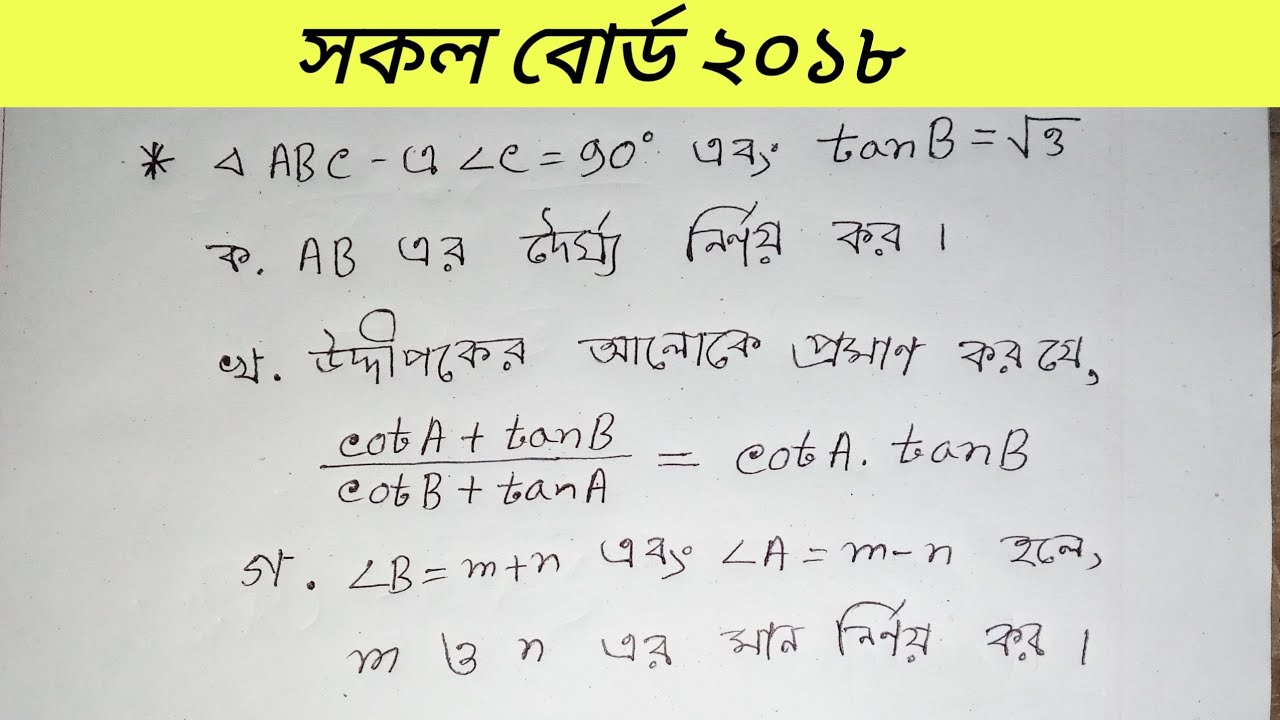 সকল বোর্ড ২০১৮
* △ ABC - এ ∠C = 90° এবং tanB = √3
ক. AB এর দৈর্ঘ্য নির্ণয় কর।
খ. উদ্দীপকের আলোকে প্রমাণ কর যে,
(cotA + tanB)/(cotB + tanA) = cotA. tanB
গ. ∠B = m+n এবং ∠A = m-n হলে,
m ও n এর মান নির্ণয় কর।